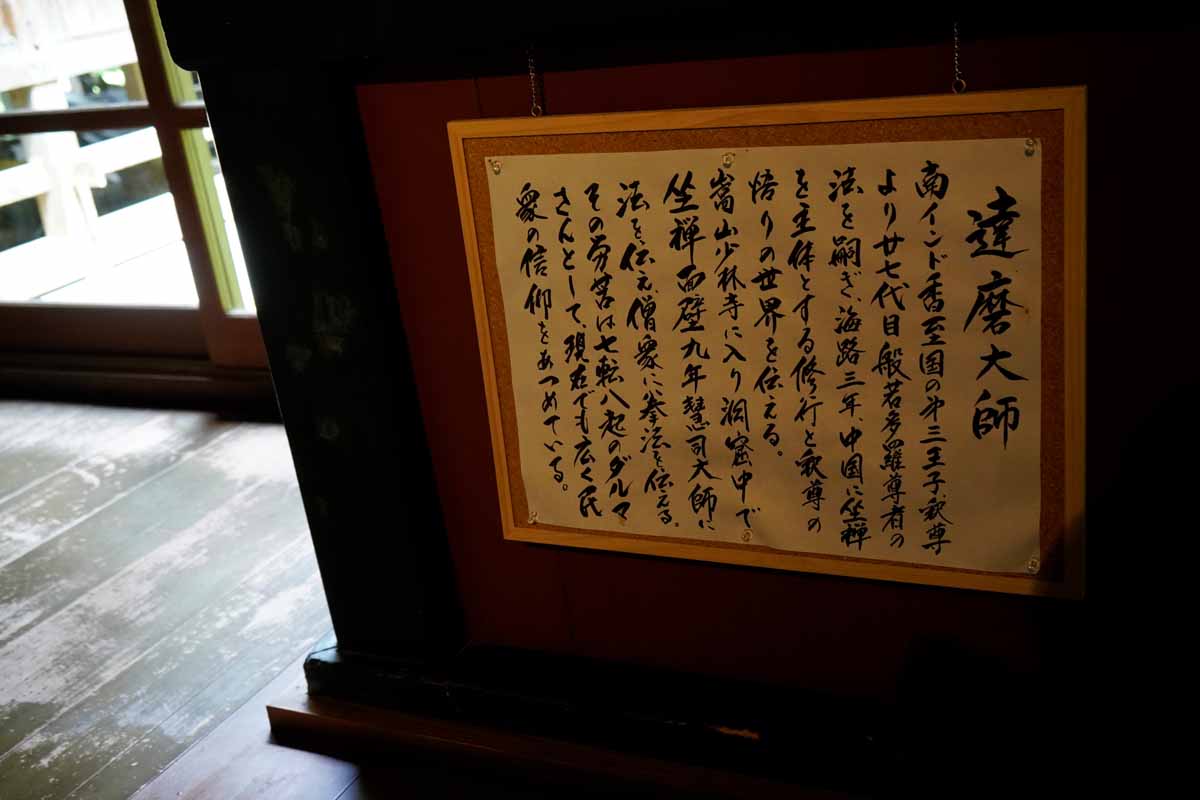 達磨大師
南インド香至国の第三王子、釈尊
より廿七代目般若多羅尊者の
法を嗣ぎ、海路三年、中国に坐禅
を主体とする修行と釈尊の
悟りの世界を伝える。
嵩山少林寺に入り洞窟中で
坐禅面壁九年慧可大師に
法を伝え、僧衆に拳法を伝える。
その労苦は七転八起のダルマ
さんとして、現在でも広く民
衆の信仰をあつめている。